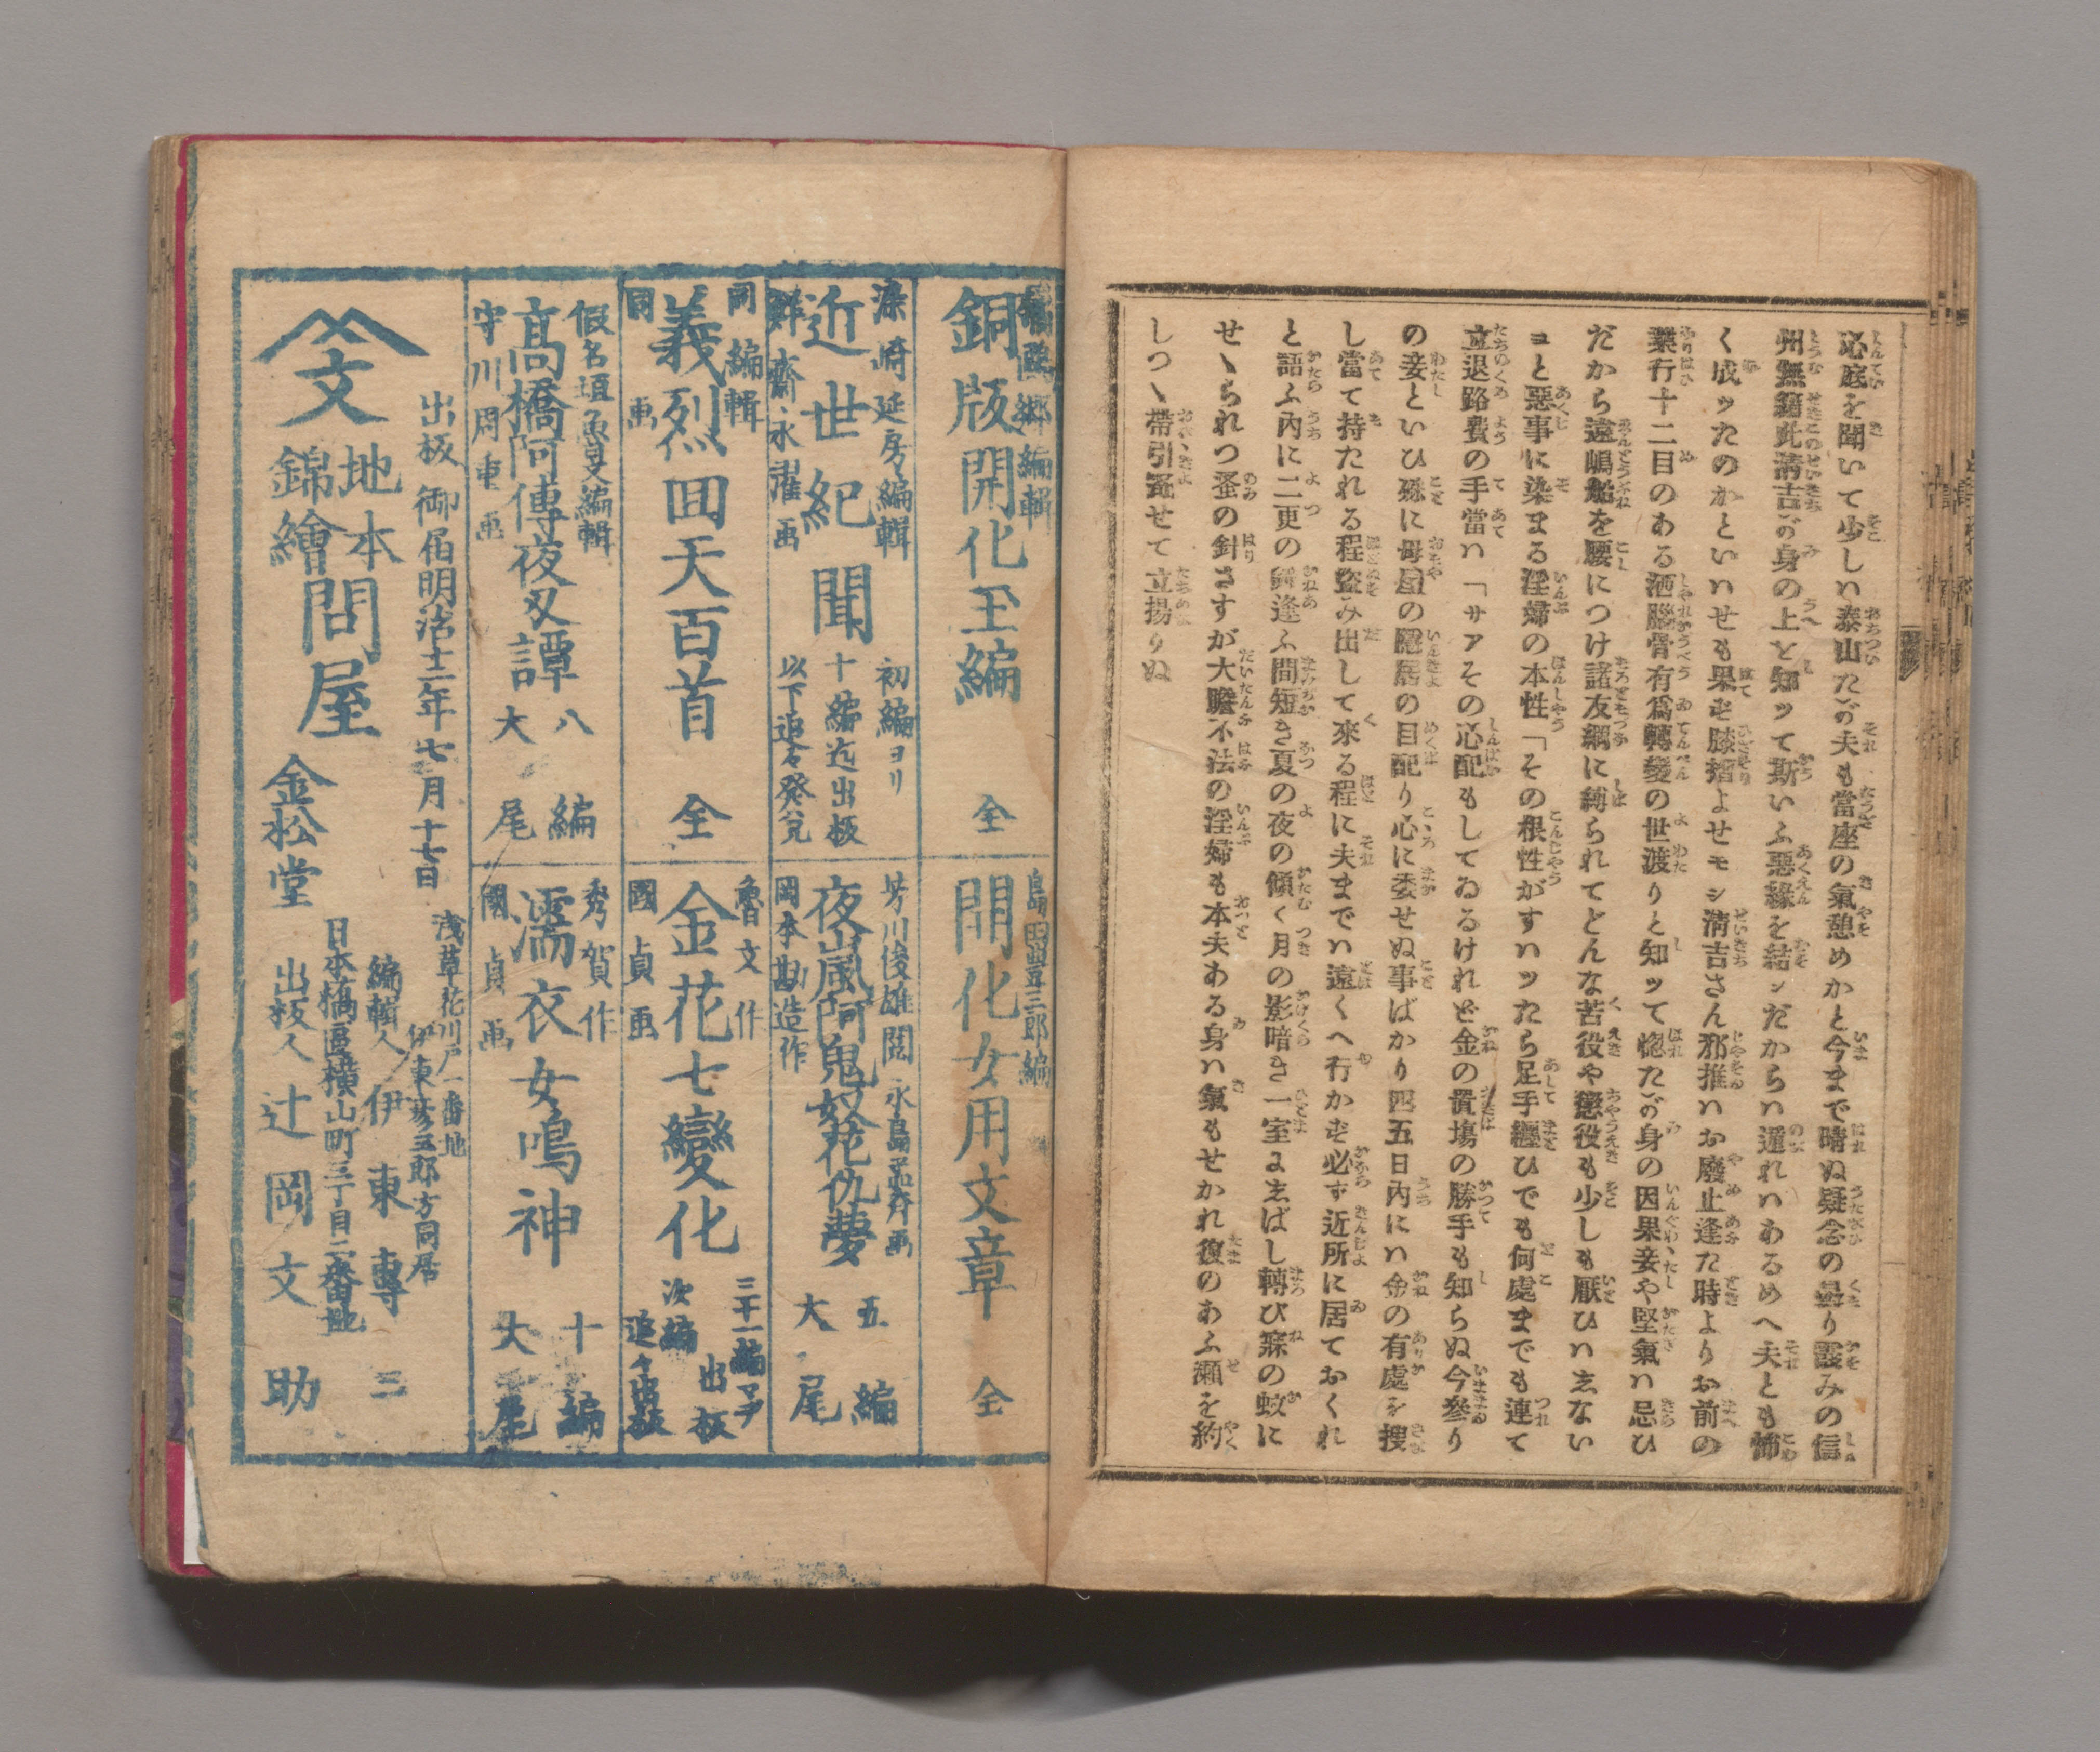 心庭を聞いて少しハ泰山たが夫も當座の氣憩めかと今まで晴ぬ疑念の曇り霞みの信
州無籍此淸吉が身の上と知ッて斯いふ惡緣を結ンだからハ遁れハあるめへ夫とも怖
く成ッたのかといハせも果ず膝摺よせモシ淸吉さん邪推ハお廢止逢た時よりお前の
業行十二目のある洒腦骨有爲轉變の世渡りと知ッて惚たが身の因果妾や堅氣ハ忌ひ
だから遠嶋船を腰につけ諸友綱に縛られてどんな苦役や懲役も少しも厭ひハ志ない
ヨと惡事に染まる淫婦の本性「その根性がすハッたら足手纒ひでも何處までも連て
立退路費の手當ハ「サアその心配もしてゐるけれど金の置塲の勝手も知らぬ今參り
の妾といひ殊に母屋の隱居の目配り心に委せぬ事ばかり四五日內にハ金の有處を搜
し當て持たれる程盜み出して來る程に夫までハ遠くへ行かず必ず近所に居ておくれ
と語ふ內に二更の鐘逢ふ間短き夏の夜の傾く月の影暗き一室に志ばし轉び寐の蚊に
せゝられつ蚤の針さすが大膽不法の淫婦も本夫ある身ハ氣もせかれ復のあふ瀨を約
しつゝ帶引〆せて立揚りぬ
編輯
銅版開化玉編 全
島田豊三郎編
開化女用文章 全
染崎延房編輯
近世紀聞
鮮齋永濯画
初編ヨリ
十編迄出板
以下追々発兌
芳川俊雄閲 永島孟斉画
夜嵐阿鬼花仇夢
岡本勘造作
五編
大尾
同編輯
義烈回天百首 全
同画
魯文作
金花七變化
國貞画
三十一編マデ
出板
次編
追々出板
假名垣魯文編輯
高橋阿傳夜叉譚
守川周重画
八編
大尾
秀賀作
濡衣女鳴神
國貞画
十編
大尾
出板御届明治十二年七月十七日
文
地本
錦繪
問屋
金松堂
浅草花川戸一番地
伊東彦五郎方同居
編輯人 伊東專二
日本橋區横山町三丁目二番地
出板人 辻岡文助